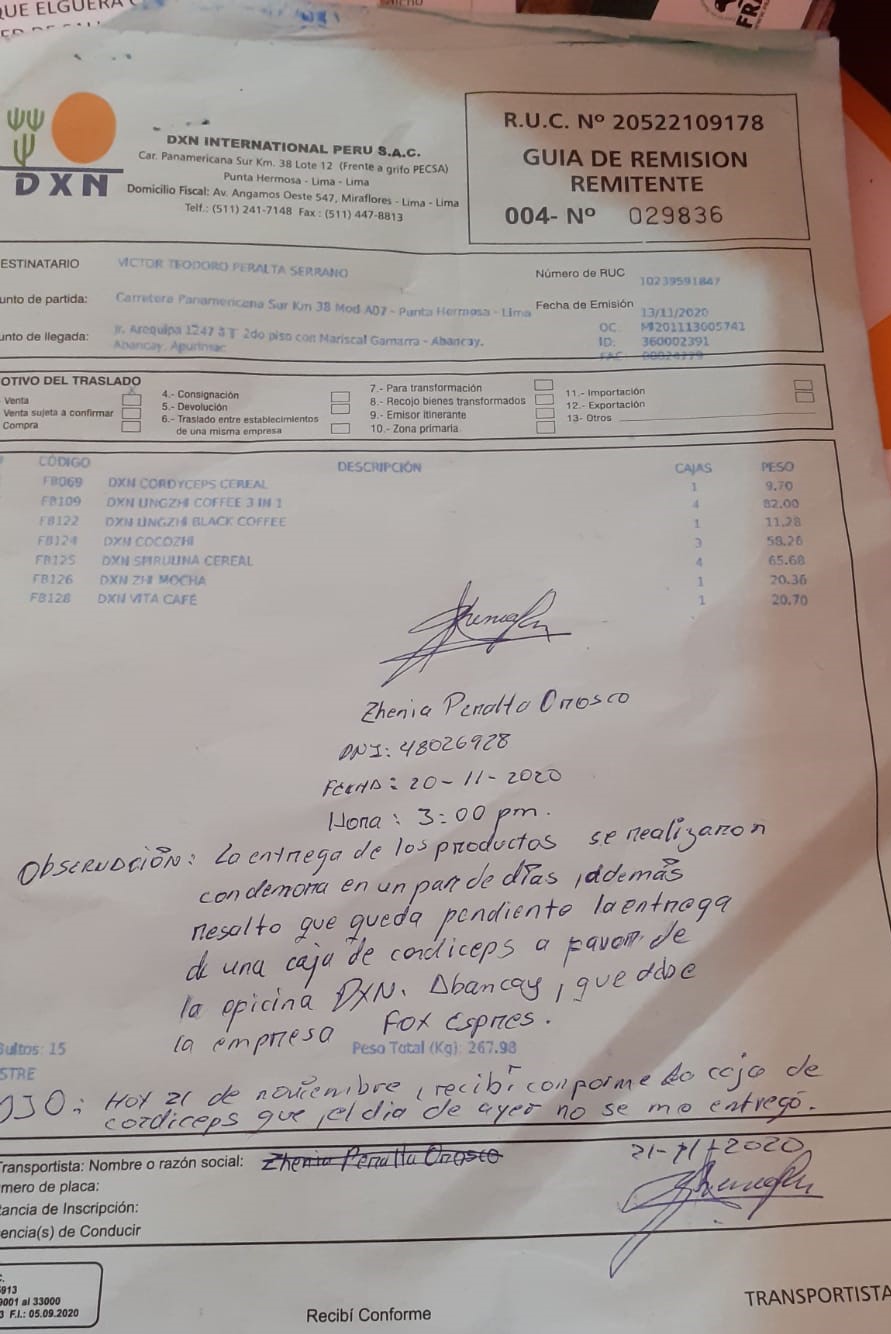 QUE ELGUERA
DXN
DXN INTERNATIONAL PERU S.A.C.
Car. Panamericana Sur Km. 38 Lote 12 (Frente a grifo PECSA)
Punta Hermosa - Lima - Lima
Domicilio Fiscal: Av. Angamos Oeste 547, Miraflores - Lima - Lima
Telf.: (511) 241-7148 Fax : (511) 447-8813
R.U.C. Nº 20522109178
GUIA DE REMISION
REMITENTE
004- Nº 029836
ESTINATARIO VICTOR TEODORO PERALTA SERRANO
Número de RUC 10239591847
unto de partida: Carretera Panamericana Sur Km 38 Mod A07 - Punta Hermosa - Lima
Fecha de Emisión 13/11/2020
unto de llegada: Jr. Arequipa 1247 2do piso con Mariscal Gamarra - Abancay.
Abancay, Apurimac
OC MI201113005741
ID: 360002391
FAC: 00024779
OTIVO DEL TRASLADO
Venta
Venta sujeta a confirmar
Compra
4.- Consignación
5.- Devolución
6.- Traslado entre establecimientos
de una misma empresa
7.- Para transformación
8.- Recojo bienes transformados
9.- Emisor itinerante
10.- Zona primaria
11.- Importación
12.- Exportación
13- Otros
CÓDIGO DESCRIPCIÓN CAJAS PESO
FB069 DXN CORDYCEPS CEREAL 1 9.70
FB109 DXN LINGZHI COFFEE 3 IN 1 4 82.00
FB122 DXN LINGZHI BLACK COFFEE 1 11.28
FB124 DXN COCOZHI 3 58.26
FB125 DXN SPIRULINA CEREAL 4 65.68
FB126 DXN ZHI MOCHA 1 20.36
FB128 DXN VITA CAFÉ 1 20.70
Zhenia Peralta Orosco
DNI: 48026928
Fecha: 20-11-2020
Hora: 3:00 pm.
Observación: La entrega de los productos se realizaron
con demora en un par de días, además
resalto que queda pendiente la entrega
de una caja de cordiceps a favor de
la oficina DXN. Abancay, que debe
la empresa Fox Espres.
Bultos: 15 Peso Total (Kg): 267.98
STRE
OJO: Hoy 21 de noviembre, recibí conforme la caja de
cordiceps que, el día de ayer no se me entregó.
21-11-2020
Transportista: Nombre o razón social: Zhenia Peralta Orosco
mero de placa:
tancia de Inscripción:
encia(s) de Conducir
913
9001 al 33000
3 F.I.: 05.09.2020
Recibí Conforme
TRANSPORTISTA